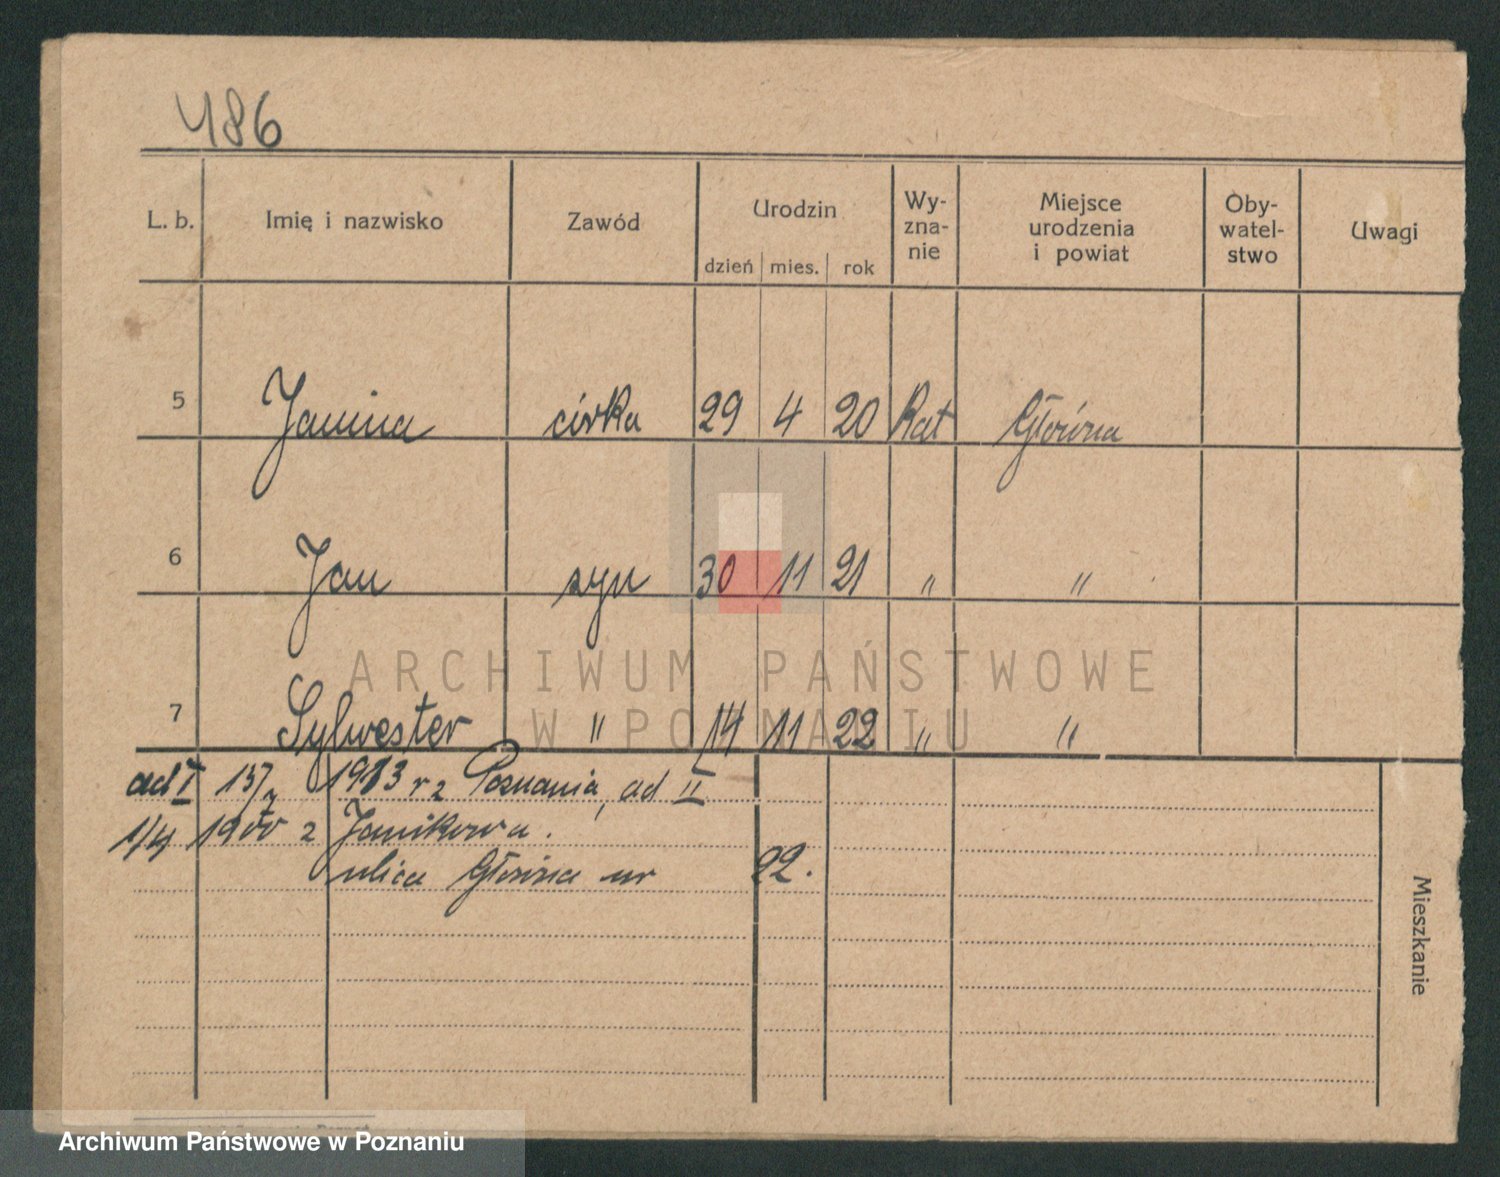 486
L. b. Imię i nazwisko Zawód Urodzin dzień mies. rok Wy-zna-nie Miejsce urodzenia i powiat Oby-watel-stwo Uwagi
5 Janina córka 29 4 20 Kat Główna
6 Jan syn 30 11 21 " "
7 Sylwester " 14 11 22 " "
ad I 15/7 1913 r z Poznania, ad II
1/4 1900 z Janikowa.
ulica Główna nr 22.
Mieszkanie
ARCHIWUM PAŃSTWOWE
W POZNANIU
Archiwum Państwowe w Poznaniu